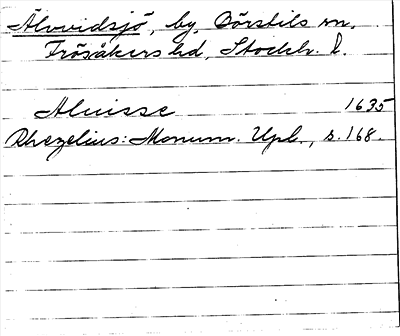 Älvvidsjö, by, Börstils sn.
Frösåkers hd, Stockh. l.
Aluisse 1635
Rhezelius: Monum. Upl., s. 168.